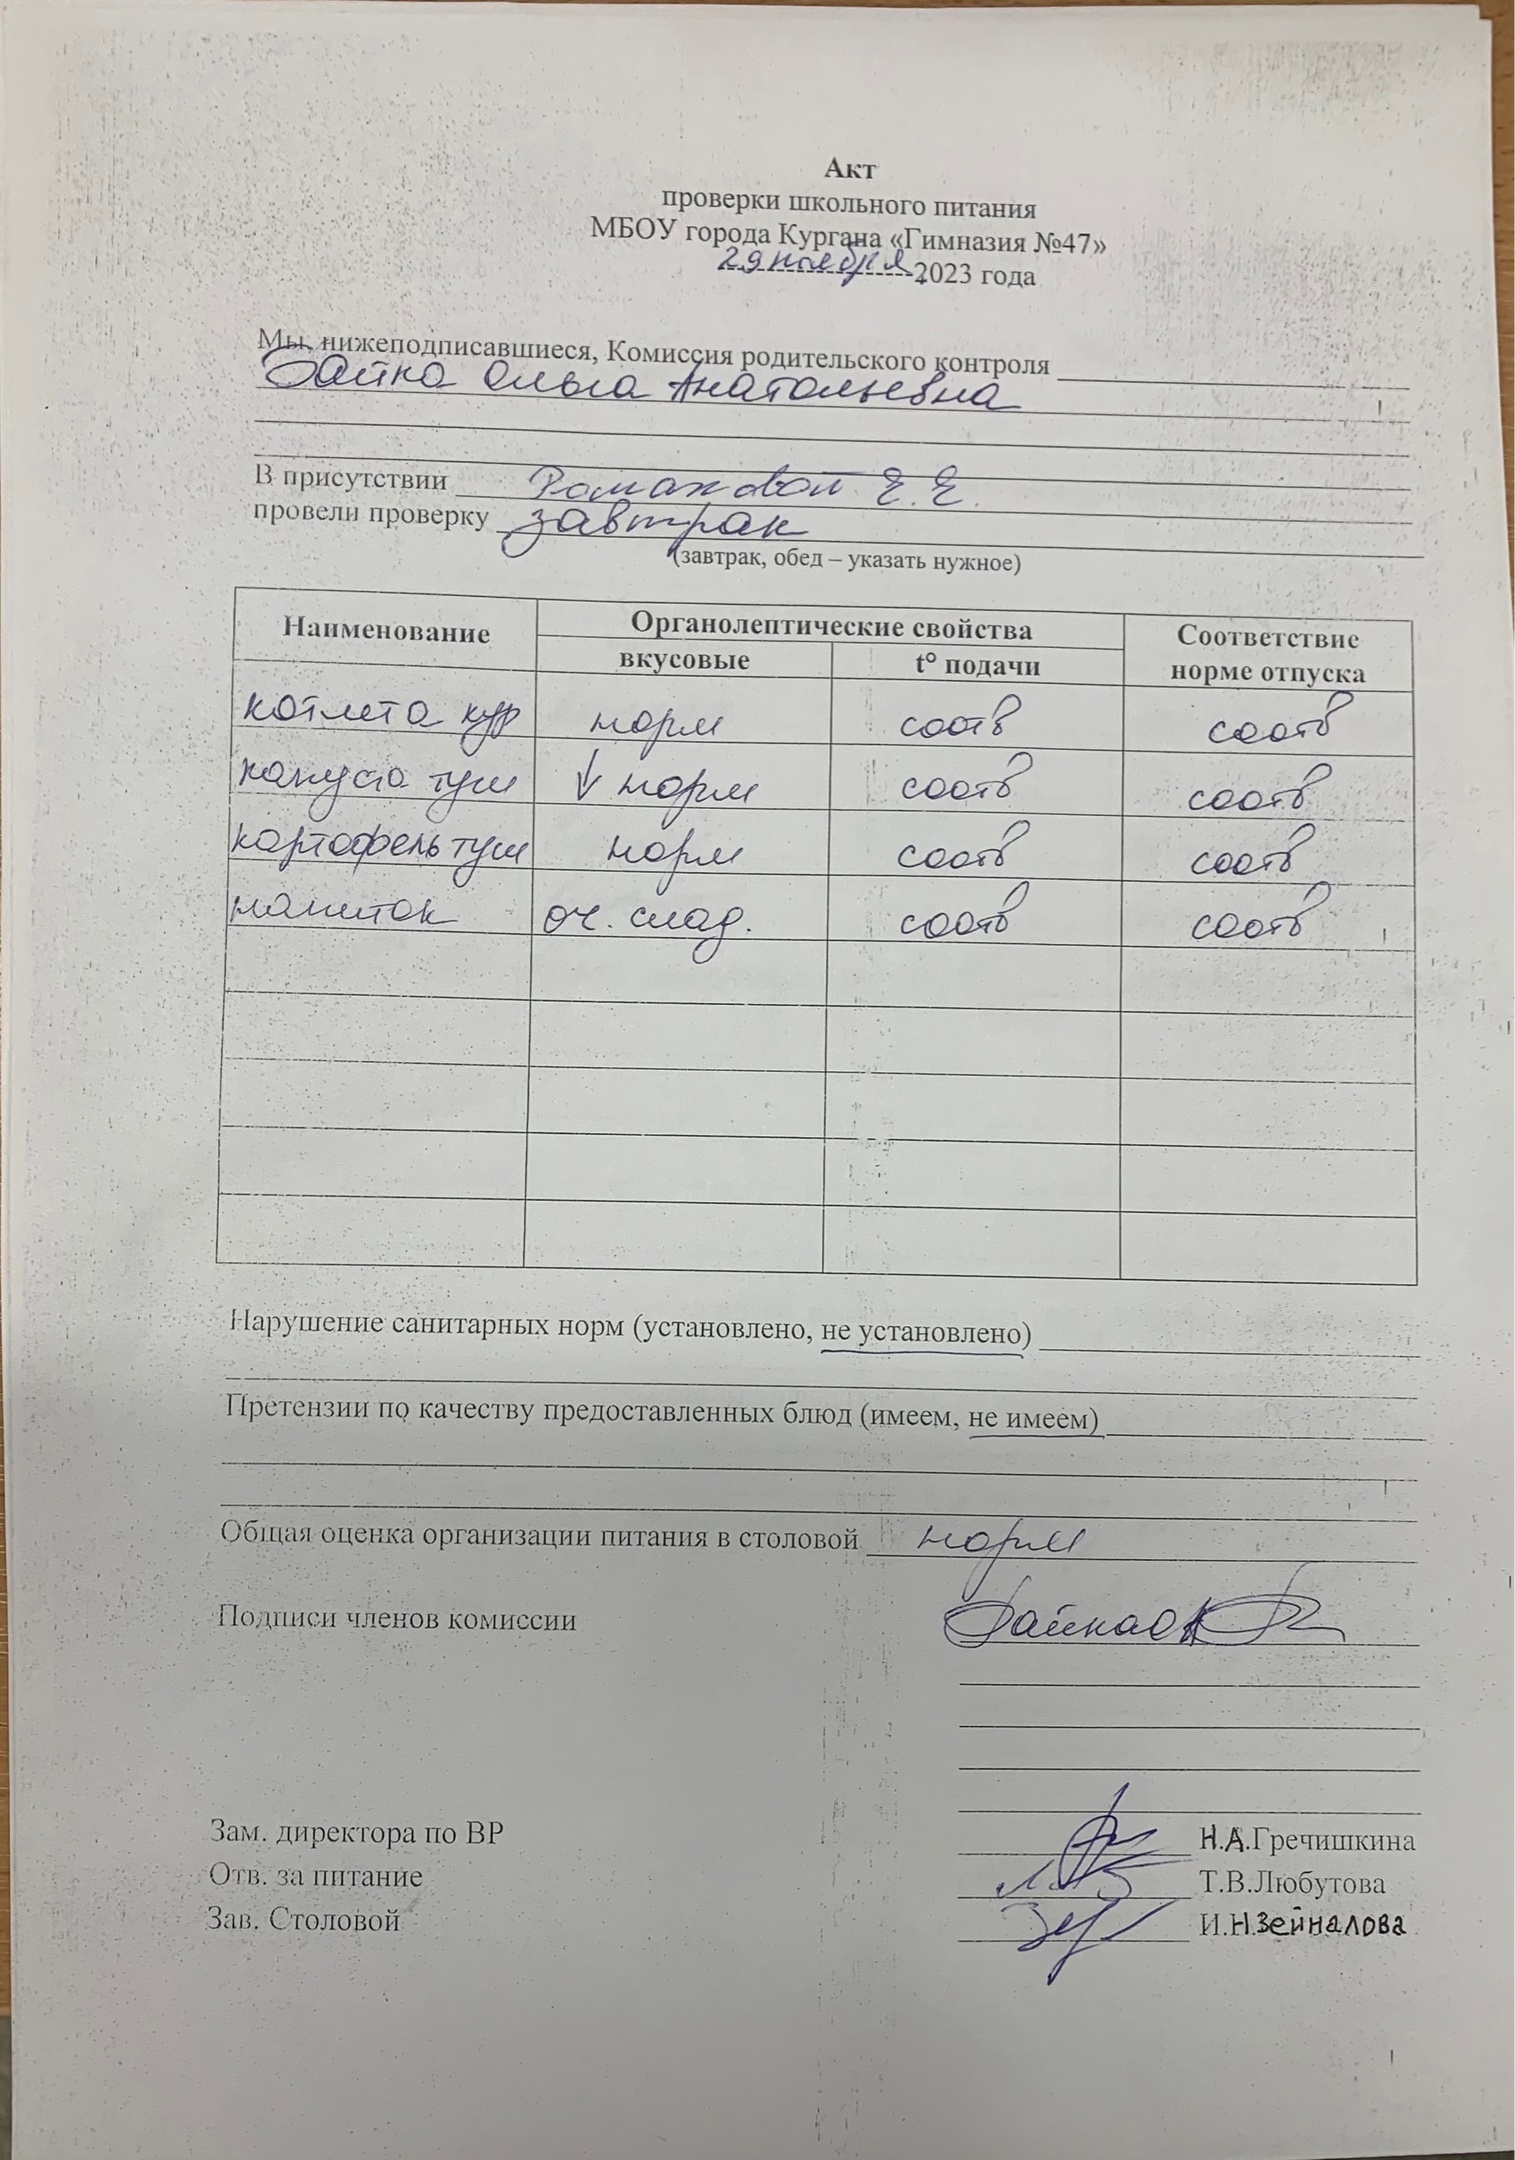 Акт
проверки школьного питания
МБОУ города Кургана «Гимназия №47»
29 ноября 2023 года
Мы, нижеподписавшиеся, Комиссия родительского контроля
Байка Ольга Анатольевна
В присутствии Романовой Е.Е.
провели проверку завтрак
(завтрак, обед – указать нужное)
Наименование Органолептические свойства Соответствие норме отпуска
вкусовые t° подачи
котлета кур норм соотв соотв
капуста туш ↓ норм соотв соотв
картофель туш норм соотв соотв
напиток оч. слад. соотв соотв
Нарушение санитарных норм (установлено, не установлено)
Претензии по качеству предоставленных блюд (имеем, не имеем)
Общая оценка организации питания в столовой норм
Подписи членов комиссии Байка О.А.
Зам. директора по ВР Н.А.Гречишкина
Отв. за питание Т.В.Любутова
Зав. Столовой И.Н.Зейналова